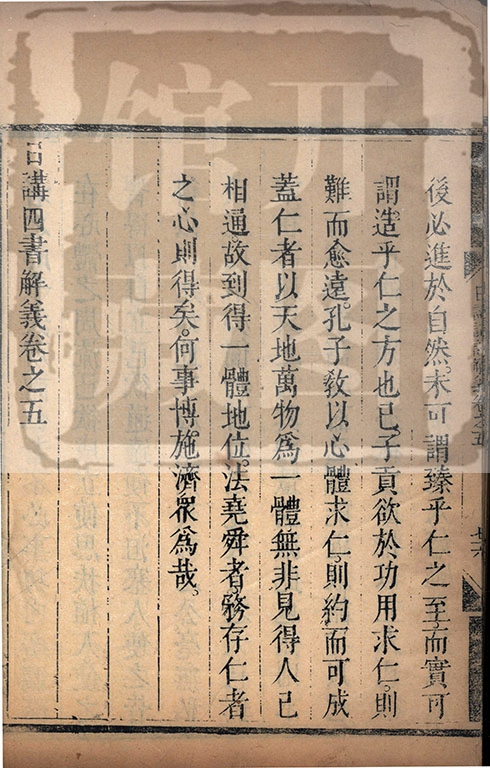 後必進於自然。未可謂臻乎仁之至。而實可
謂造乎仁之方也已。子貢欲於功用求仁。則
難而愈遠。孔子教以心體求仁。則約而可成
蓋仁者以天地萬物爲一體無非見得人己
相通。故到得一體地位。法堯舜者。務存仁者
之心則得矣。何事博施濟衆爲哉。
日講四書解義卷之五